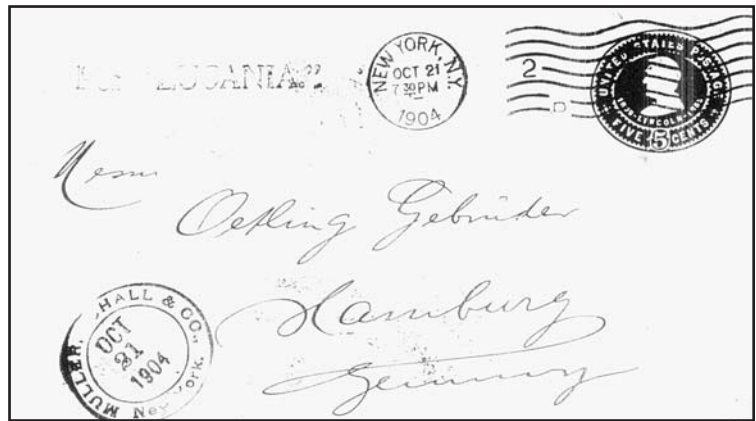 Per "LUCANIA"
NEW YORK, N.Y.
OCT 21
7 30 PM
1904
2
D
UNITED STATES POSTAGE
LINCOLN
FIVE 5 CENTS
Herrn
Oetling Gebrüder
Hamburg
Germany
MULLER, & CO.,
OCT
21
1904
New York.